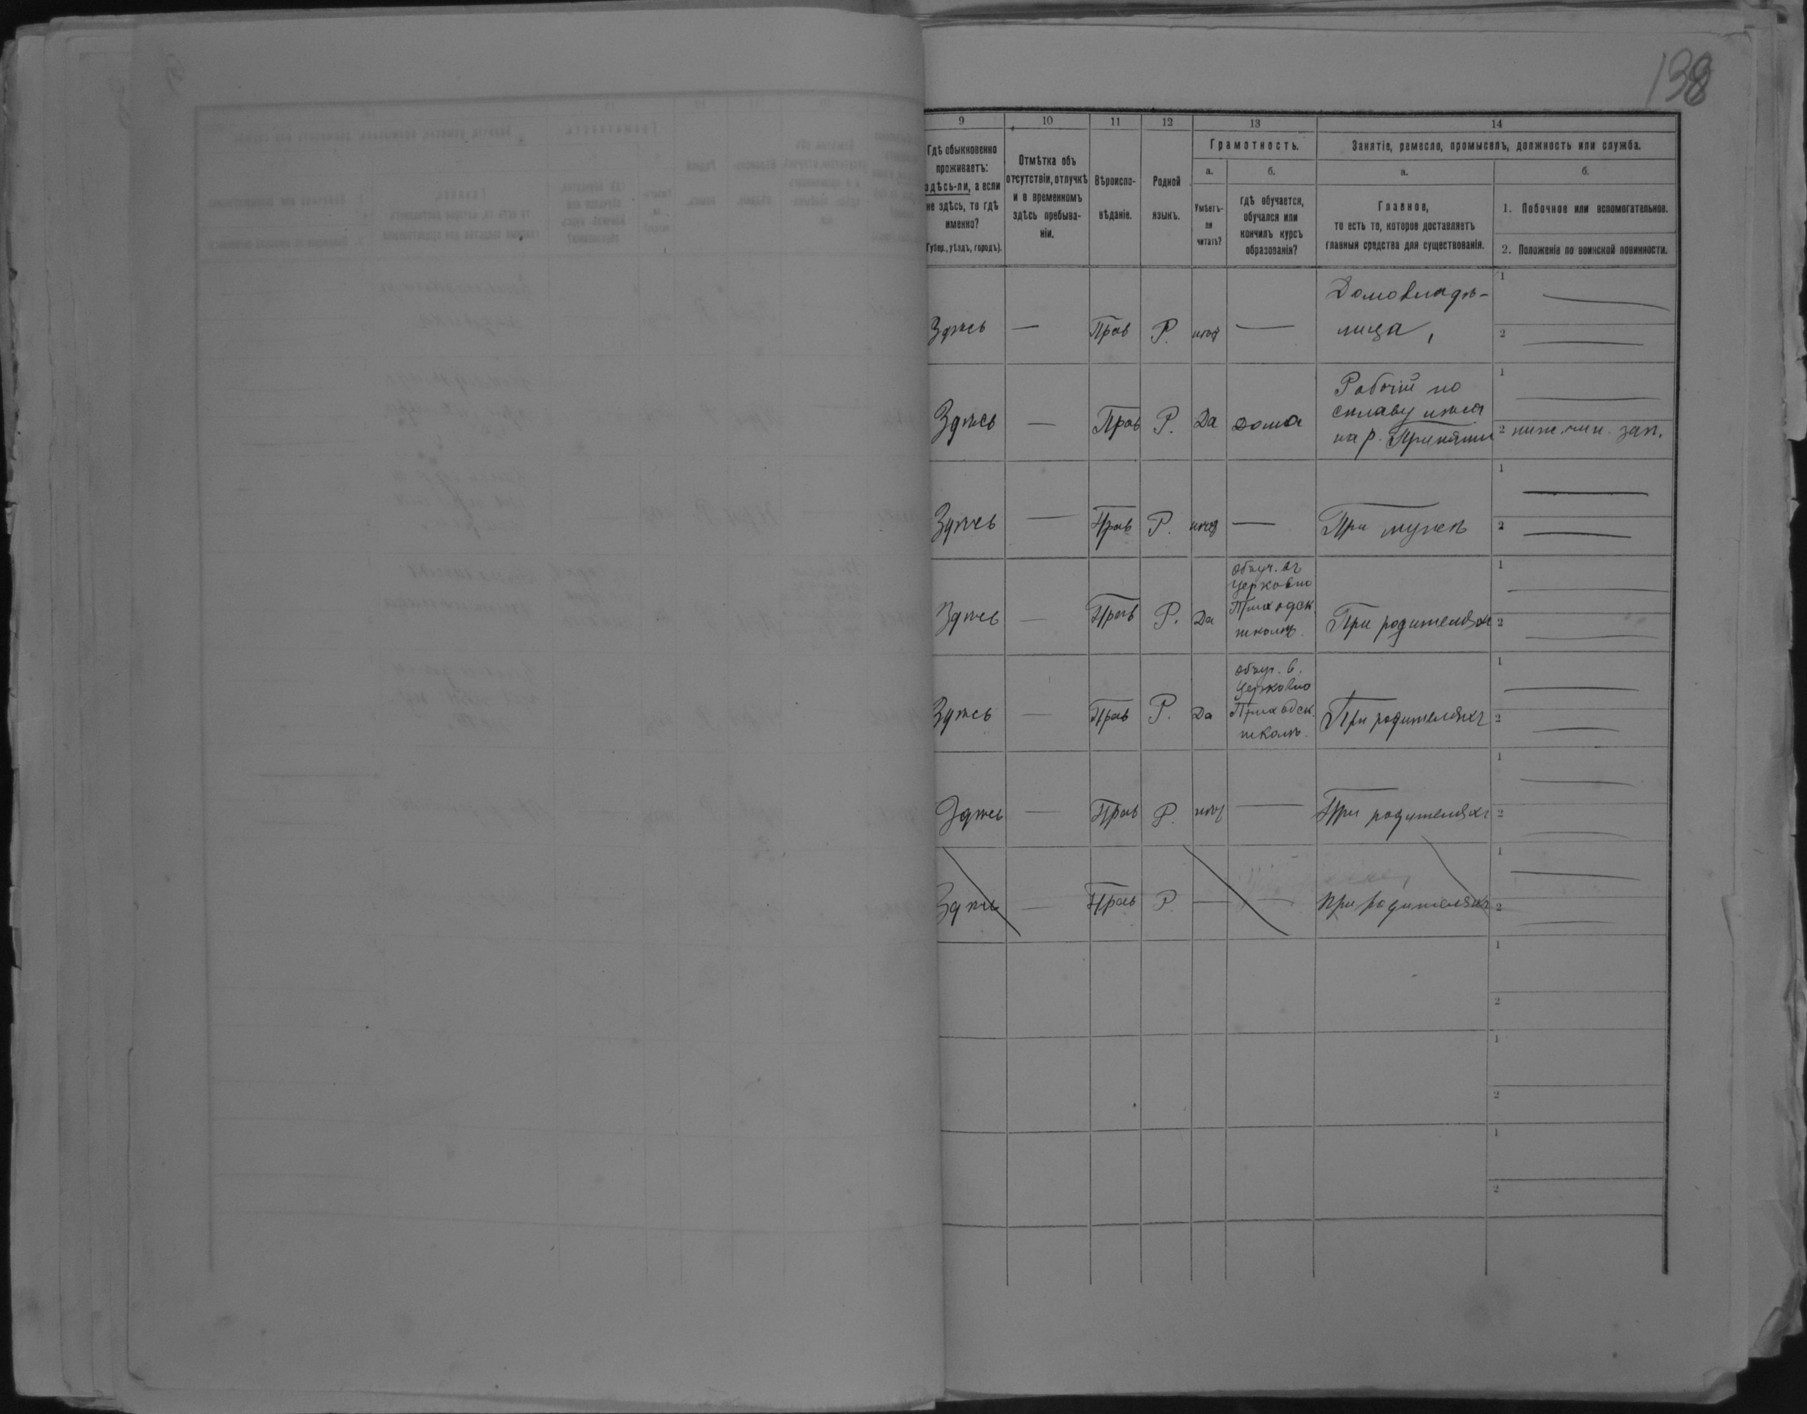 138
9 10 11 12 13 14
Гдѣ обыкновенно
проживаетъ:
здѣсь-ли, а если
не здѣсь, то гдѣ
именно?
(Губер., уѣздъ, городъ).
Отмѣтка объ
отсутствіи, отлучкѣ
и о временномъ
здѣсь пребыва-
ніи.
Вѣроиспо-
вѣданіе.
Родной
языкъ.
Грамотность.
а.
Умѣетъ-
ли
читать?
б.
гдѣ обучается,
обучался или
кончилъ курсъ
образованія?
Занятіе, ремесло, промыселъ, должность или служба.
а.
Главное,
то есть то, которое доставляетъ
главныя средства для существованія.
б.
1. Побочное или вспомогательное.
2. Положеніе по воинской повинности.
Здѣсь — Прав Р. нѣтъ —
Домовладѣ-
лица,
1 —
2 —
Здѣсь — Прав Р. Да Дома
Рабочій по
сплаву лѣса
на р. Припяти
1 —
2 ниж. чин. зап.
Здѣсь — Прав Р. нѣтъ — При мужѣ
1 —
2 —
Здѣсь — Прав Р. Да
Обуч. въ
Церковно
Приходск.
школѣ.
При родителяхъ
1 —
2 —
Здѣсь — Прав Р. Да
Обуч. в.
Церковно
Приходск.
школѣ.
При родителяхъ
1 —
2 —
Здѣсь — Прав Р. нѣтъ — При родителяхъ
1 —
2 —
Здѣсь — Прав Р — — При родителяхъ
1 —
2 —
1
2
1
2
1
2